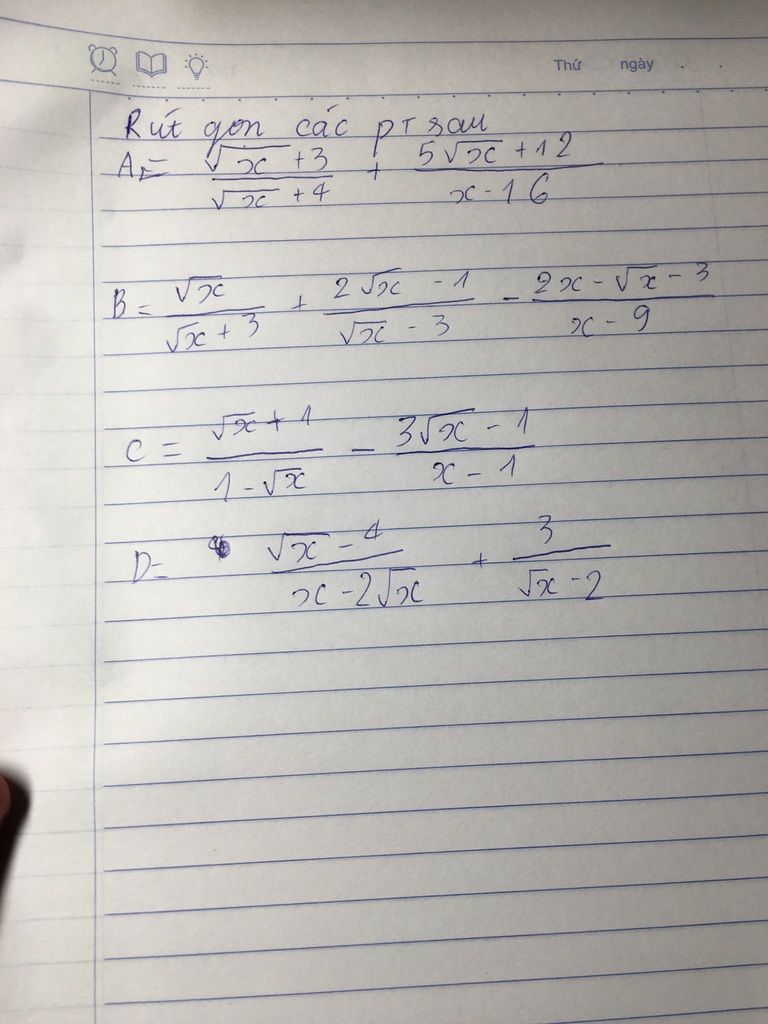 Thứ ngày
Rút gọn các pT sau
A = (√x + 3)/(√x + 4) + (5√x + 12)/(x - 16)
B = √x/(√x + 3) + (2√x - 1)/(√x - 3) - (2x - √x - 3)/(x - 9)
C = (√x + 1)/(1 - √x) - (3√x - 1)/(x - 1)
D = (√x - 4)/(x - 2√x) + 3/(√x - 2)